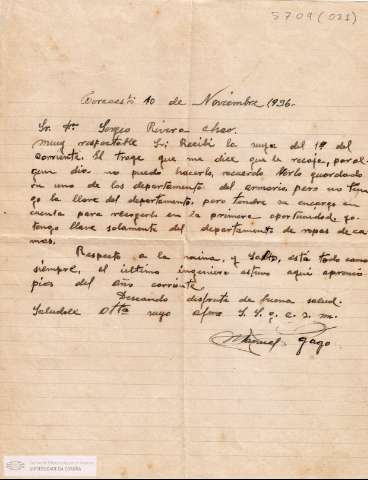 5709 (031)
10 de Noviembre 1936.
Sr. Dn. Sergio Rivera Chao.
muy respetable Sr: Recibi la suya del 1º del
corriente. El traje que me dice que le recoje, por al-
gun dia no puedo hacerlo, recuerdo verlo guardado
en uno de los departamento del armario, pero no ten-
go la llave del departamento, pero tendre su encargo en
cuenta para recogerlo en la primera oportunidad, yo
tengo llave solamente del departamento de ropas de ca-
mas.
Respecto a la y Salto, esta todo como
siempre, el ultimo ingeniero estuvo aqui a princi-
pios del año corriente.
Deseando disfrute de buena salud.
Saludole Atto suyo afmo S. S. q. e. s. m.
Manuel Gago
UNIVERSIDADE DA CORUÑA